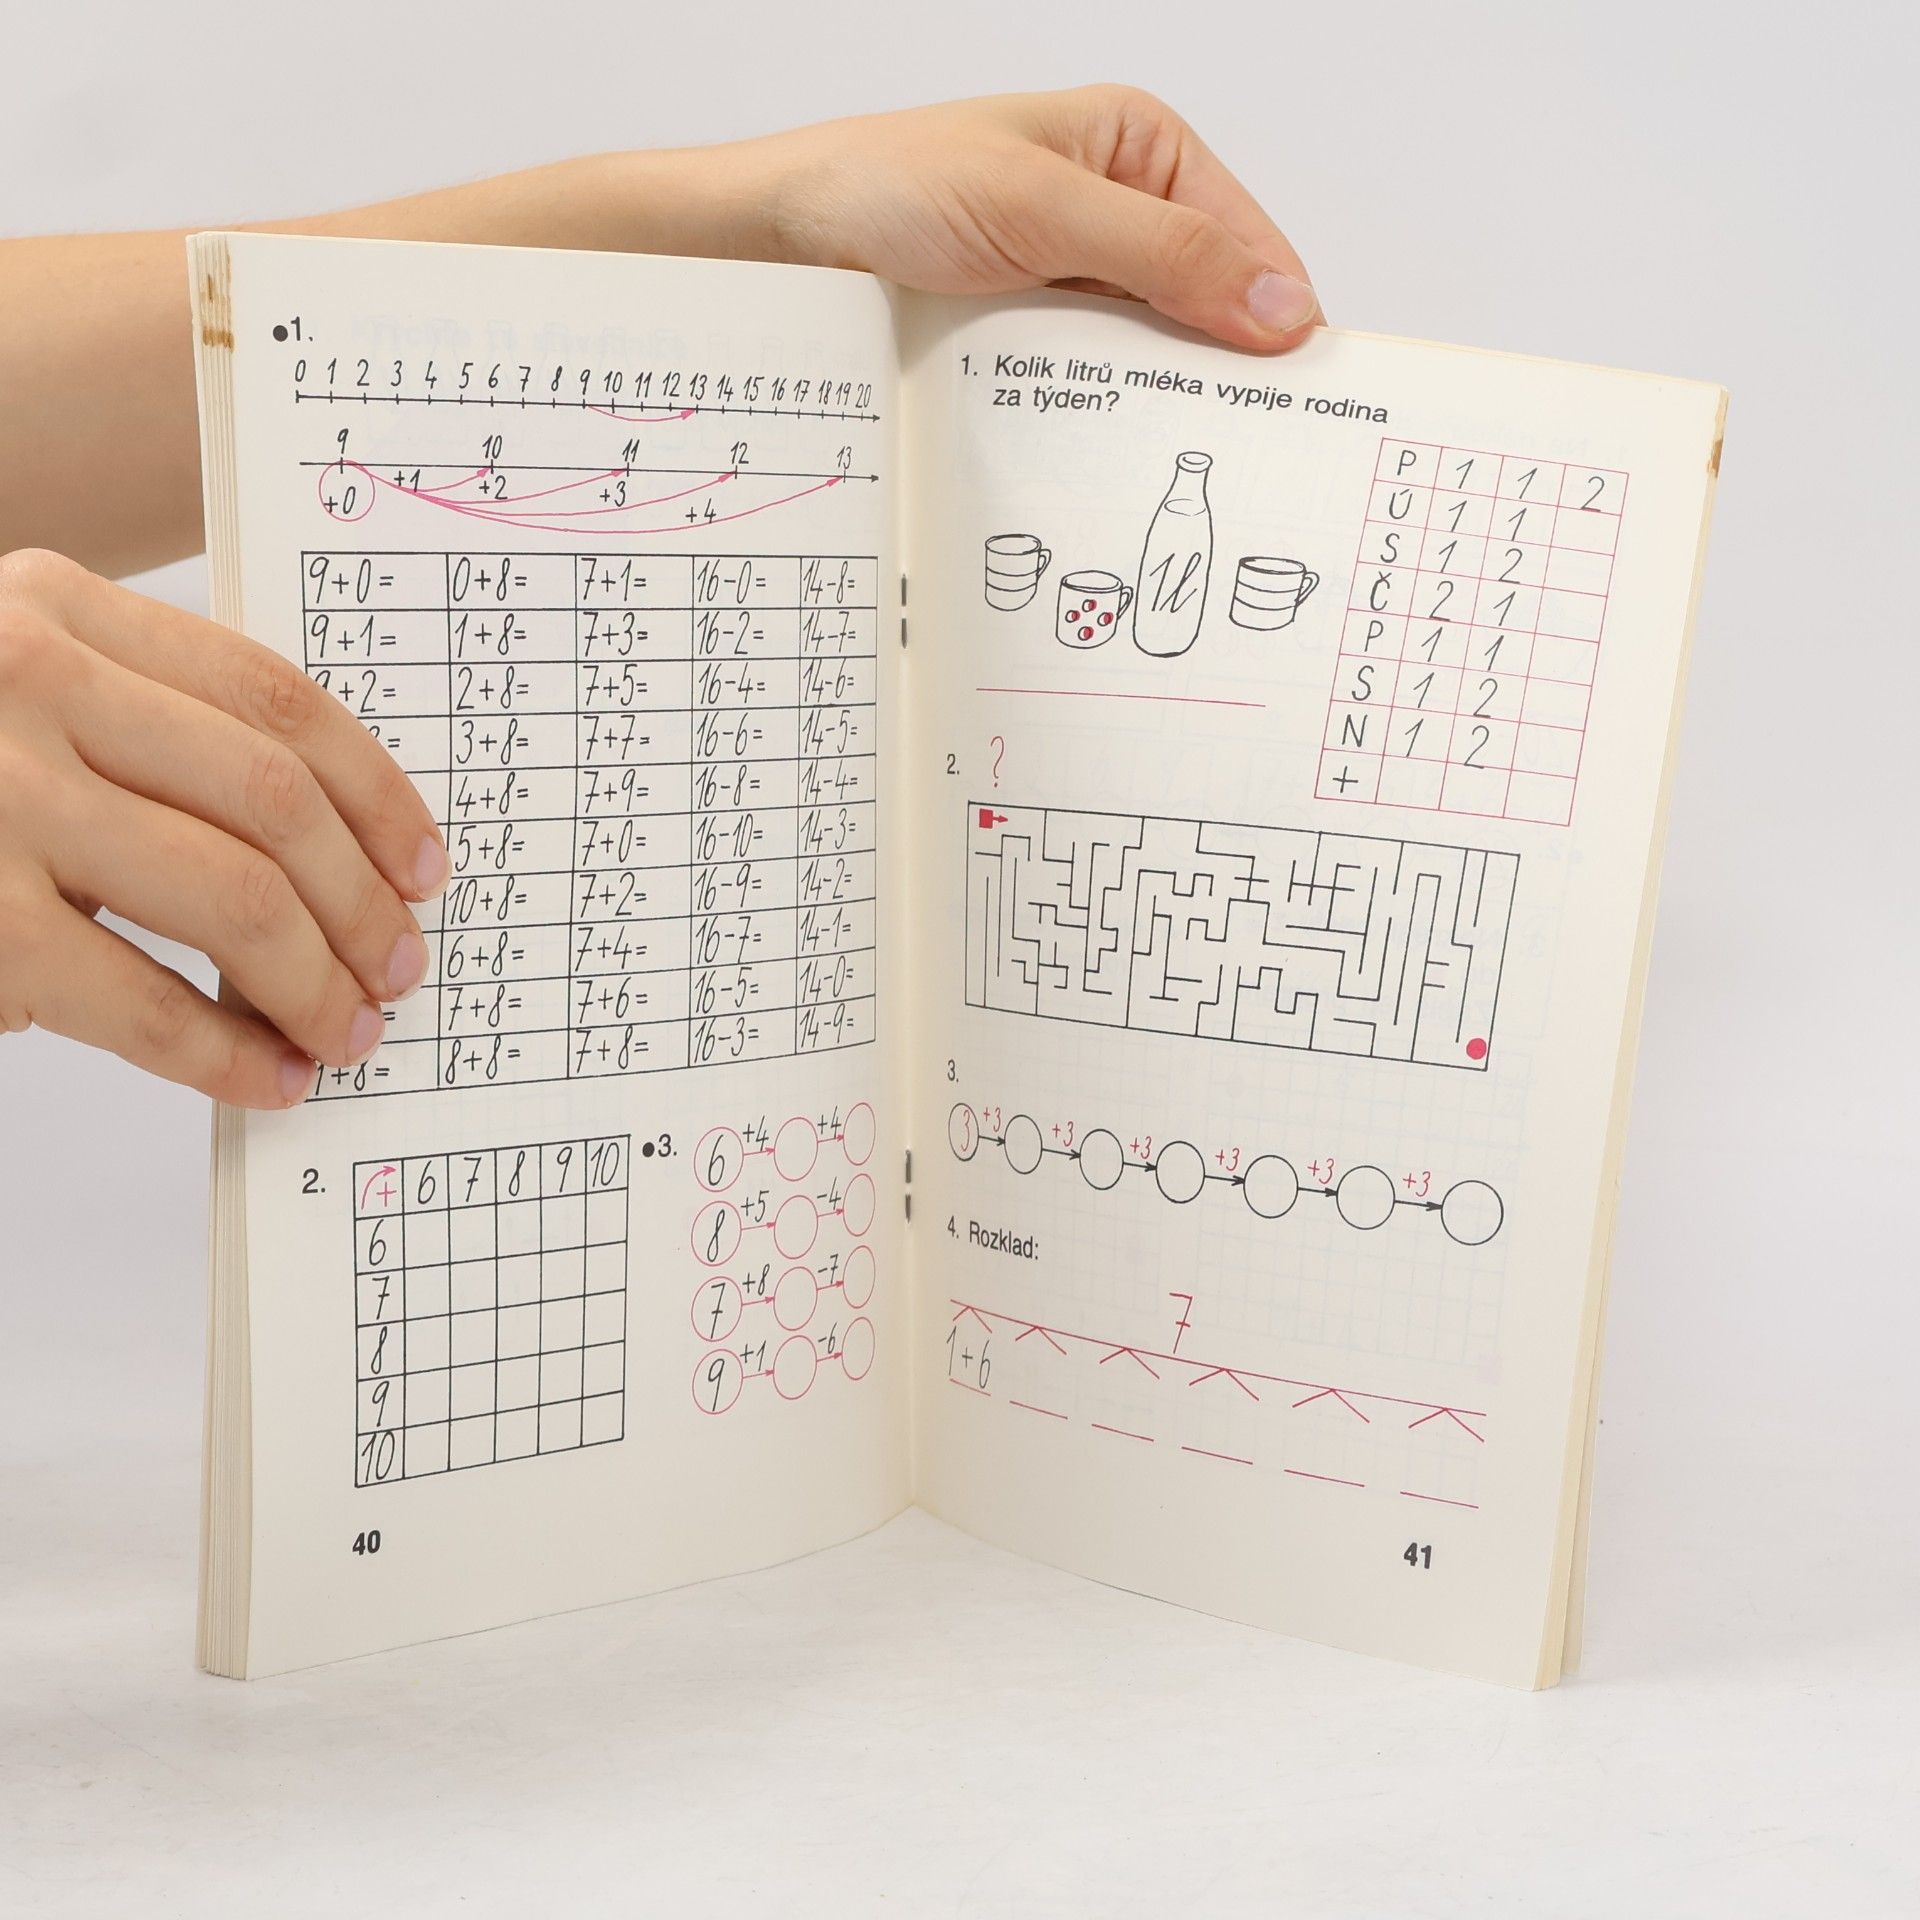 ●1.
0 1 2 3 4 5 6 7 8 9 10 11 12 13 14 15 16 17 18 19 20
9 10 11 12 13
+0 +1 +2 +3 +4
9+0= 0+8= 7+1= 16-0= 14-8=
9+1= 1+8= 7+3= 16-2= 14-7=
9+2= 2+8= 7+5= 16-4= 14-6=
= 3+8= 7+7= 16-6= 14-5=
4+8= 7+9= 16-8= 14-4=
5+8= 7+0= 16-10= 14-3=
10+8= 7+2= 16-9= 14-2=
6+8= 7+4= 16-7= 14-1=
= 7+8= 7+6= 16-5= 14-0=
+8= 8+8= 7+8= 16-3= 14-9=
2.
+ 6 7 8 9 10
6
7
8
9
10
●3.
6 +4 +4
8 +5 -4
7 +8 -7
9 +1 -6
40
1. Kolik litrů mléka vypije rodina
za týden?
1l
P 1 1 2
Ú 1 1
S 1 2
Č 2 1
P 1 1
S 1 2
N 1 2
+
2. ?
3.
3 +3 +3 +3 +3 +3 +3
4. Rozklad:
7
1+6
41